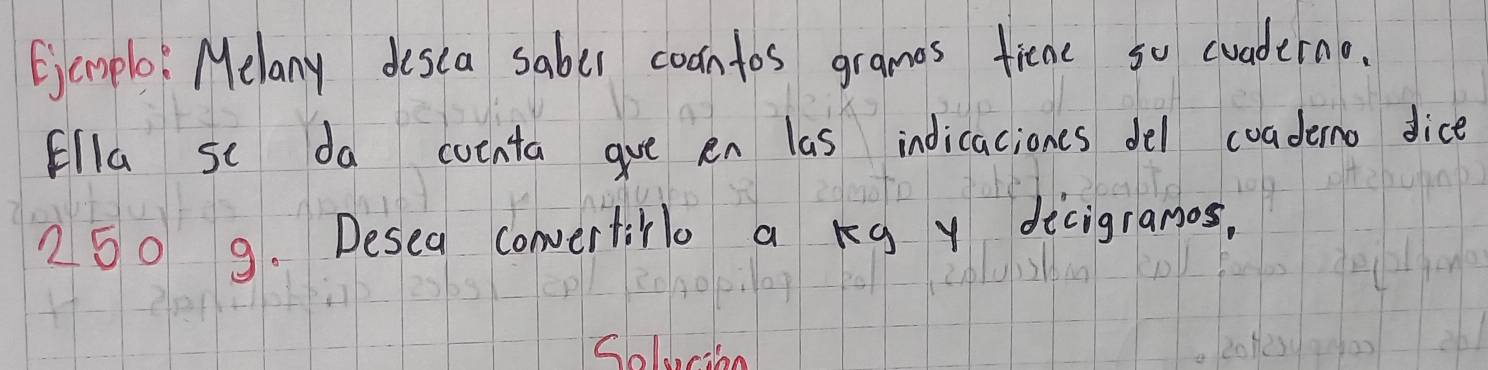 Ejemplo: Melany desea saber coantos gramos tiene su cuaderno.
Ella se da cuenta que en las indicaciones del cuaderno dice
250 g. Desea convertirlo a kg y decigramos,
Solución